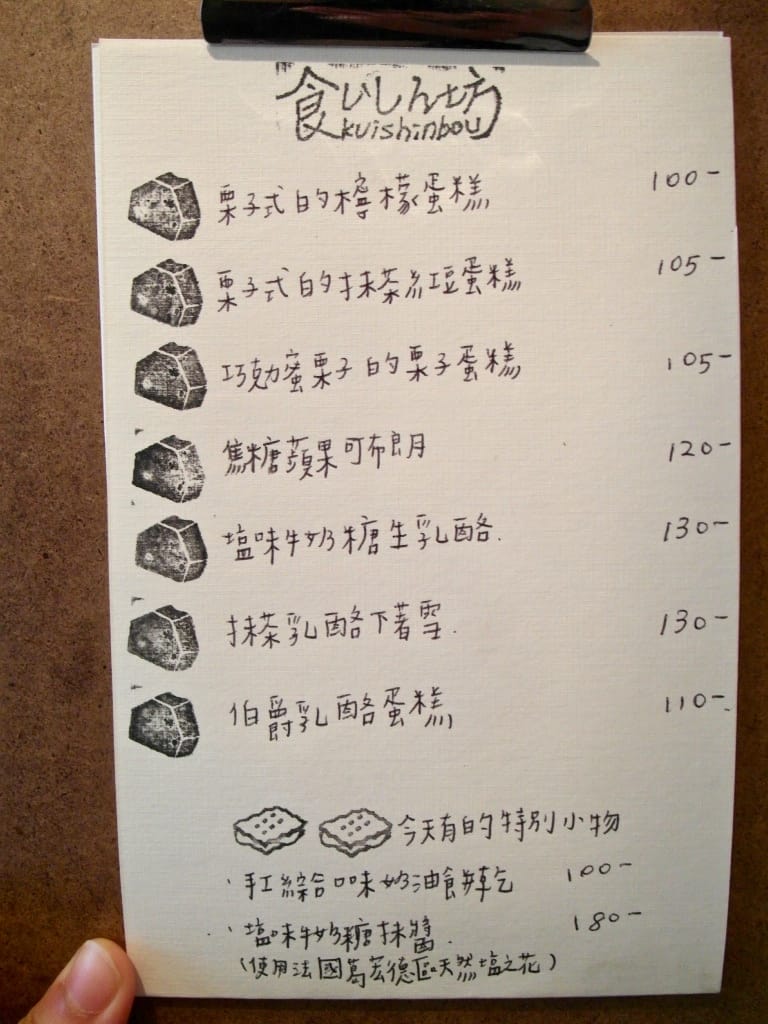 食いしん坊
kuishinbou
栗子式的檸檬蛋糕 100-
栗子式的抹茶紅豆蛋糕 105-
巧克力蜜栗子的栗子蛋糕 105-
焦糖蘋果可布朗 120-
塩味牛奶糖生乳酪. 130-
抹茶乳酪下著雪. 130-
伯爵乳酪蛋糕 110-
今天有的特別小物
·手工綜合口味奶油餅乾 100-
·塩味牛奶糖抹醬. 180-
(使用法國葛宏德區天然塩之花)